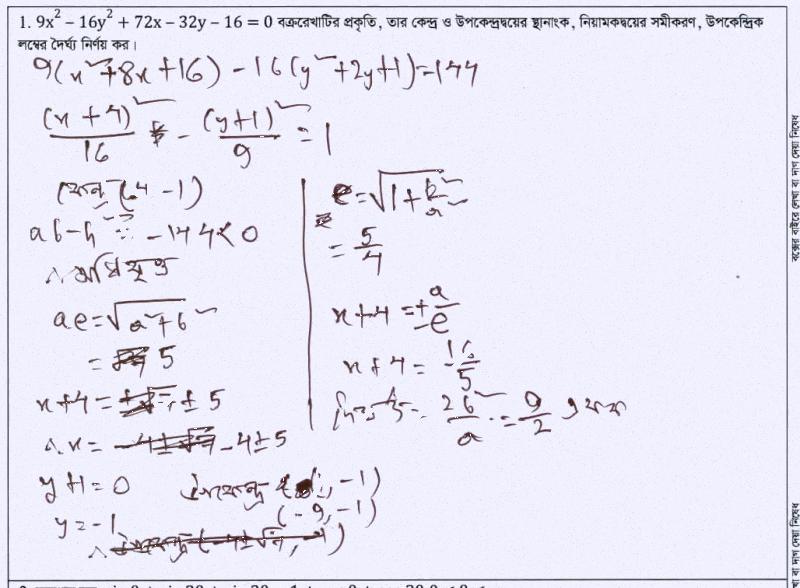 1. 9x² − 16y² + 72x − 32y − 16 = 0 বক্ররেখাটির প্রকৃতি, তার কেন্দ্র ও উপকেন্দ্রদ্বয়ের স্থানাংক, নিয়ামকদ্বয়ের সমীকরণ, উপকেন্দ্রিক
লম্বের দৈর্ঘ্য নির্ণয় কর।
9(x²+8x+16) − 16(y²+2y+1)=144
(x+4)²/16 − (y+1)²/9 = 1
কেন্দ্র (-4 -1)
ab-h² = -144<0
∴ অধিবৃত্ত
ae=√a²+b²
= 5
x+4= ±5
∴ x= -4±5
y+1=0
y=-1
উপকেন্দ্র (1, -1)
(-9, -1)
e=√1+b²/a²
= 5/4
x+4=±a/e
x+4= 16/5
2b²/a = 9/2 একক
বক্সের বাইরে লেখা বা দাগ দেয়া নিষেধ
বা দাগ দেয়া নিষেধ